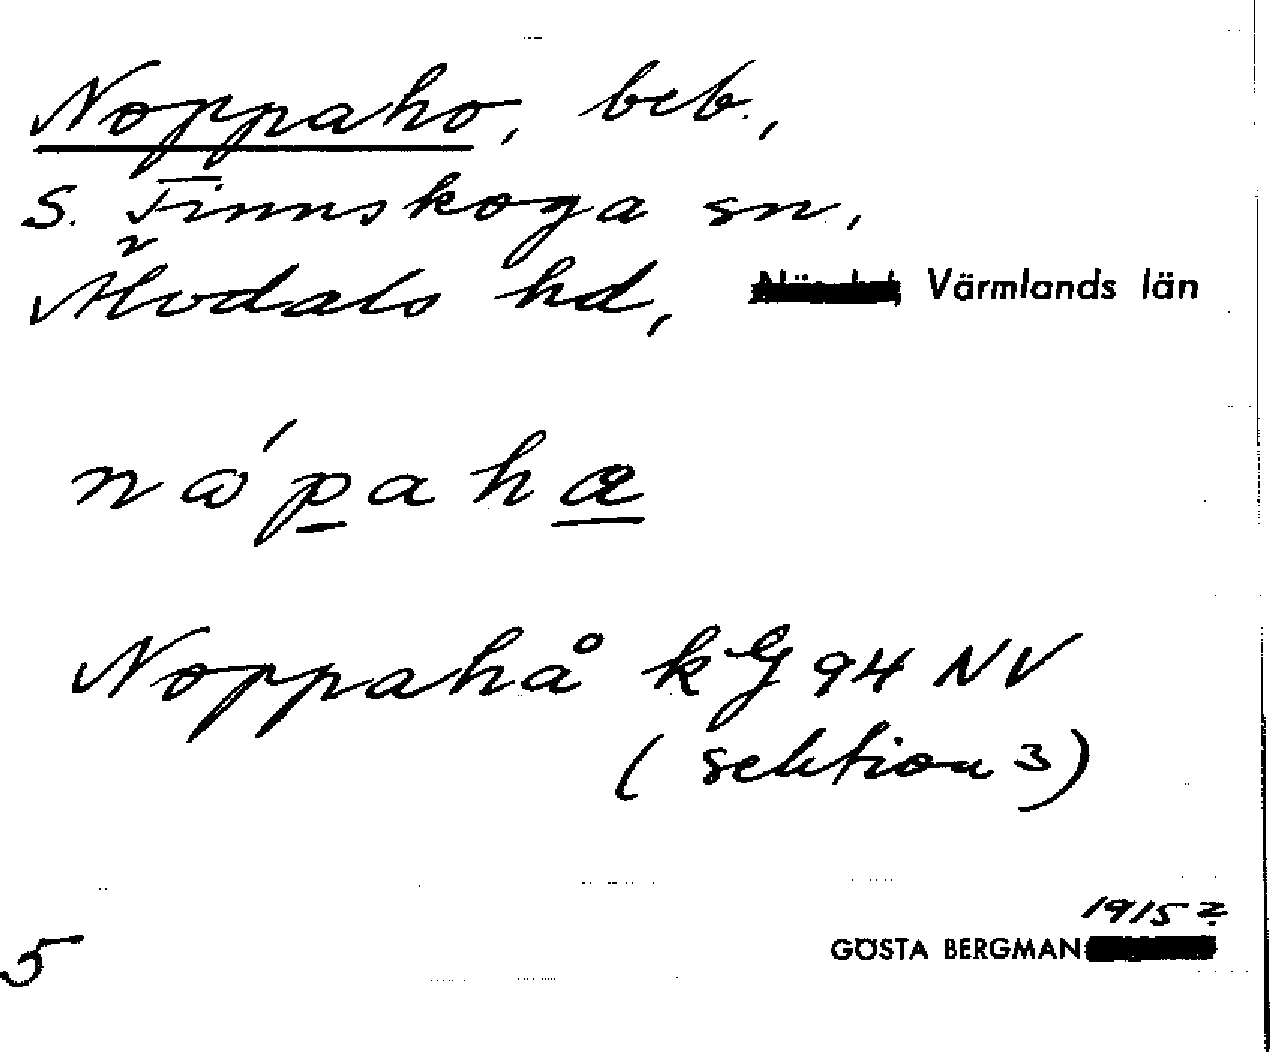 Noppaho, beb.,
S. Finnskoga sn.,
Älvdals hd, Värmlands län
nápaha
Noppahå kG 94 NV
(sektion 3)
1915?
5 GÖSTA BERGMAN